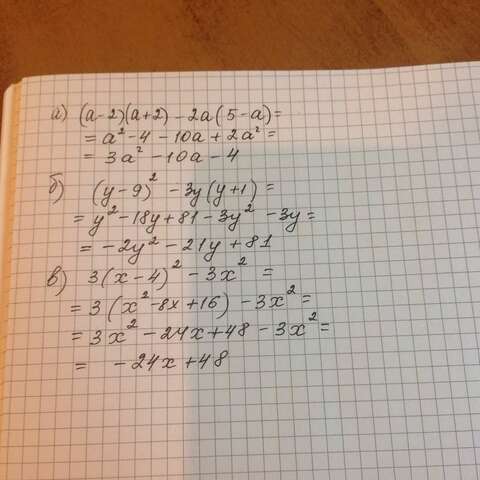 а) (a-2)(a+2) - 2a(5-a) =
= a² - 4 - 10a + 2a² =
= 3a² - 10a - 4
б) (y-9)² - 3y(y+1) =
= y² - 18y + 81 - 3y² - 3y =
= -2y² - 21y + 81
в) 3(x-4)² - 3x² =
= 3(x² - 8x + 16) - 3x² =
= 3x² - 24x + 48 - 3x² =
= -24x + 48